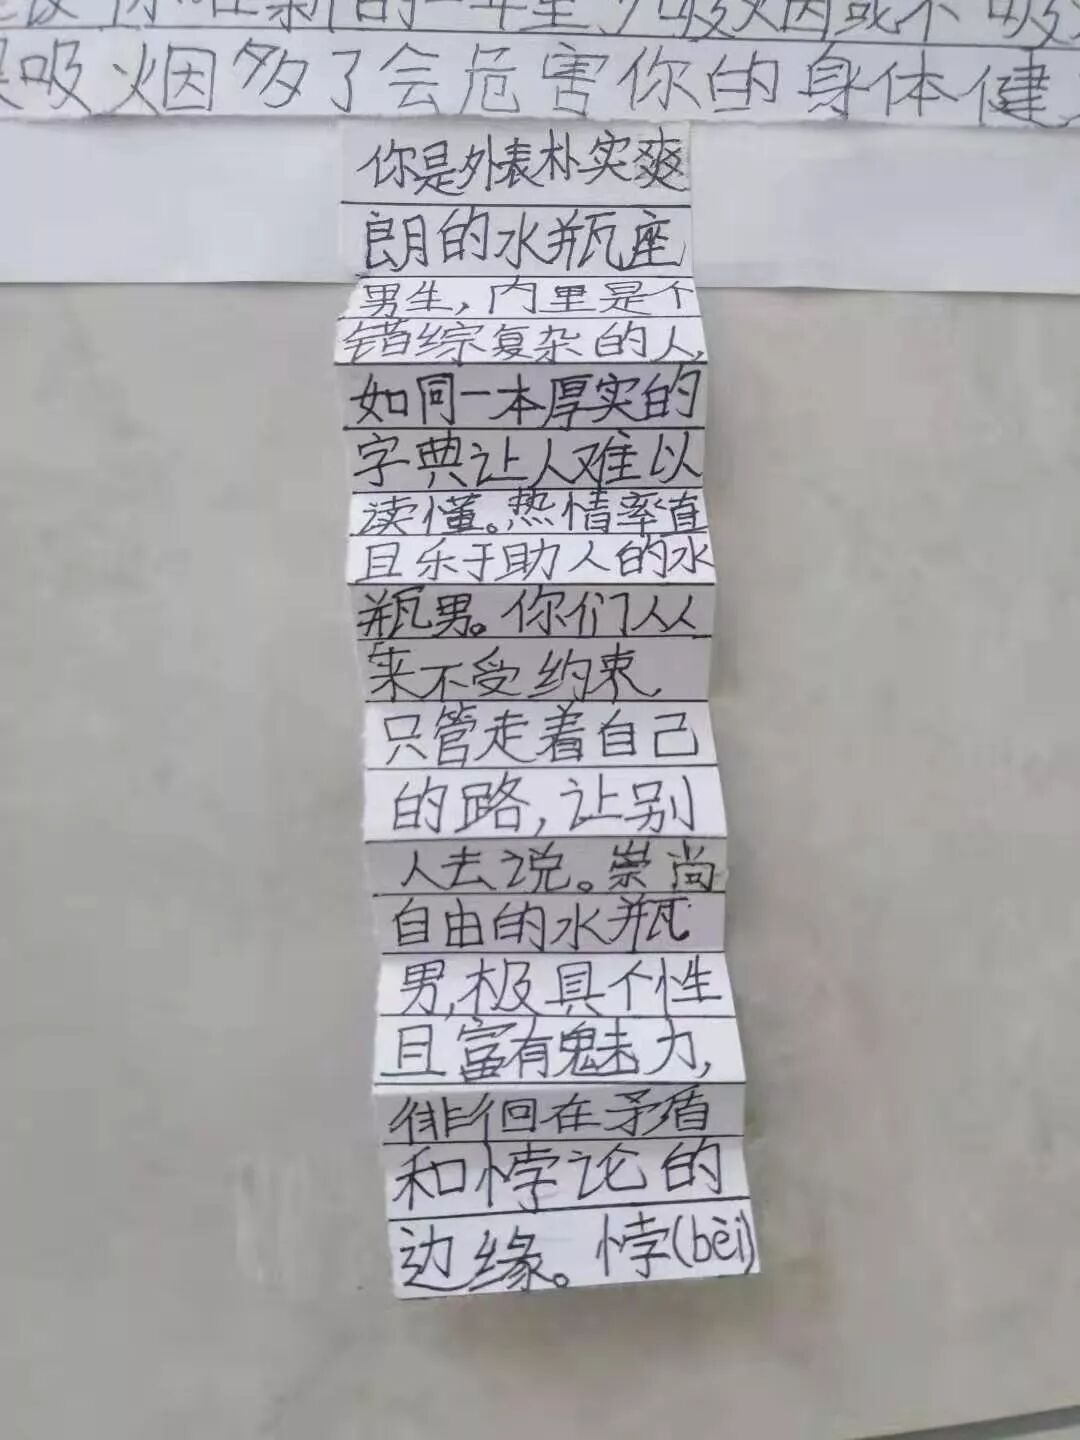 你在新的一年里少吸烟或不吸
吸烟多了会危害你的身体健
你是外表朴实爽
朗的水瓶座
男生,内里是个
错综复杂的人,
如同一本厚实的
字典让人难以
读懂。热情率直
且乐于助人的水
瓶男。你们从
来不受约束,
只管走着自己
的路,让别
人去说。崇尚
自由的水瓶
男,极具个性
且富有魅力,
徘徊在矛盾
和悖论的
边缘。悖(bèi)